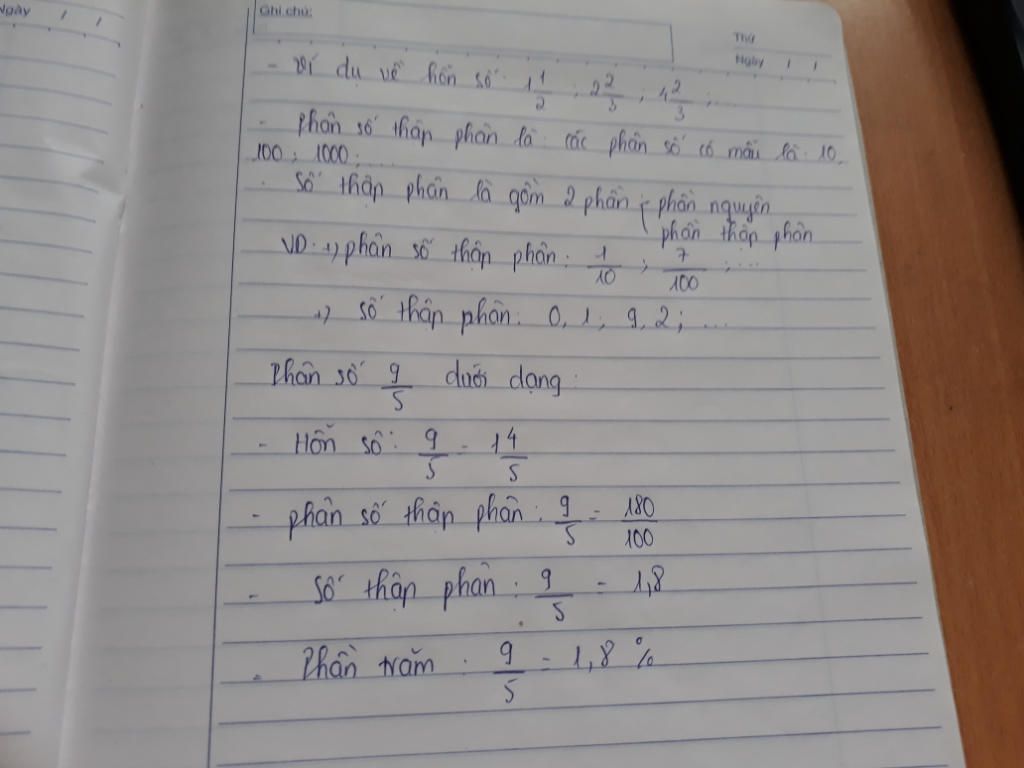 Ngày / /
Ghi chú:
Thứ
Ngày / /
- Ví dụ về hỗn số: 1 1/2 ; 2 2/3 ; 4 2/3 ; ...
- phân số thập phân là: các phân số có mẫu là: 10,
100; 1000; ...
. Số thập phân là gồm 2 phần { phần nguyên
phần thập phân
VD: +) phân số thập phân: 1/10 ; 7/100 ; ...
+) số thập phân: 0,1; 9,2; ...
Phân số 9/5 dưới dạng:
- Hỗn số: 9/5 = 1 4/5
- phân số thập phân: 9/5 = 180/100
- Số thập phân: 9/5 = 1,8
- Phần trăm: 9/5 = 1,8 %